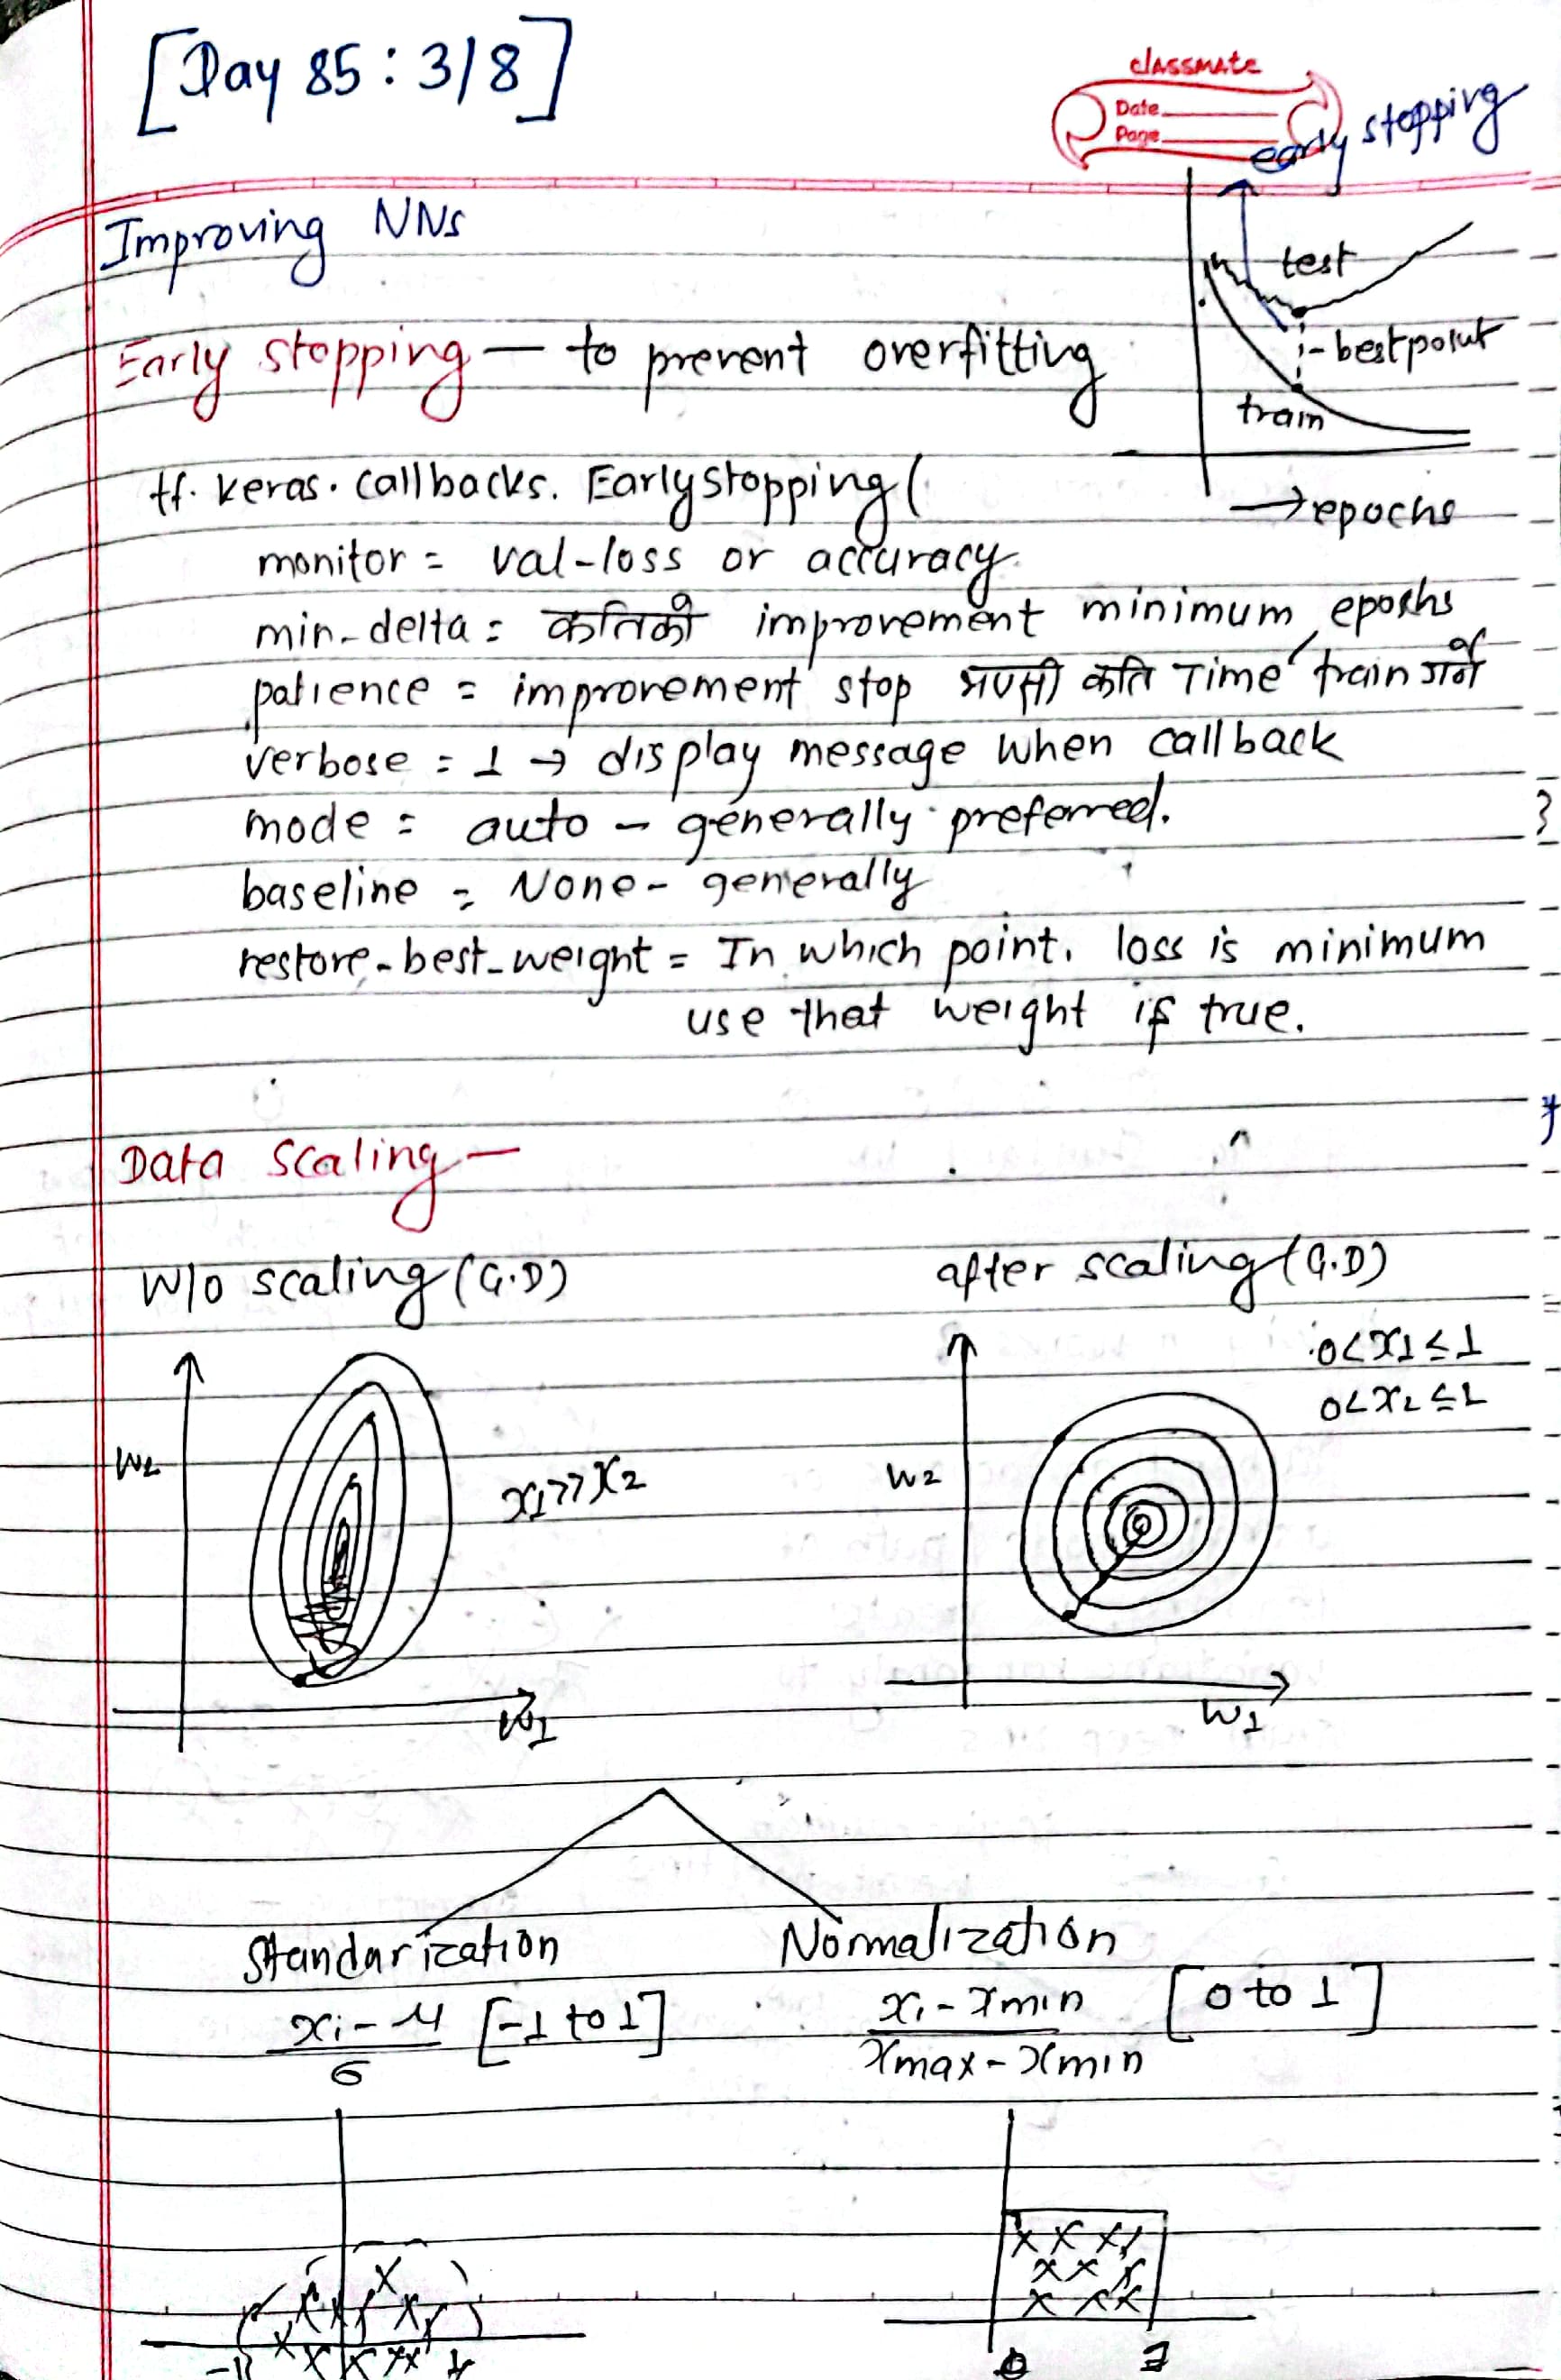 [Day 85: 3/8]
classmate
Date
Page
early stopping
Improving NNs
test
Early stopping — to prevent overfitting
best point
train
tf. keras. callbacks. Earlystopping(
→ epochs
monitor = val-loss or accuracy.
min-delta = कतिको improvement minimum
epochs
patience = improvement stop भएसी कति Time train गर्ने
verbose = 1 → display message when callback
mode = auto - generally preferred.
baseline = None - generally
restore-best-weight = In which point. loss is minimum
use that weight if true.
Data Scaling —
W/o scaling (G.D)
after scaling (G.D)
0<x1≤1
0<x2≤1
W2
x1>>x2
W2
W1
W1
Standarization
Normalization
xi-μ/σ [-1 to 1]
xi-xmin/xmax-xmin [0 to 1]
-1 1
0 1